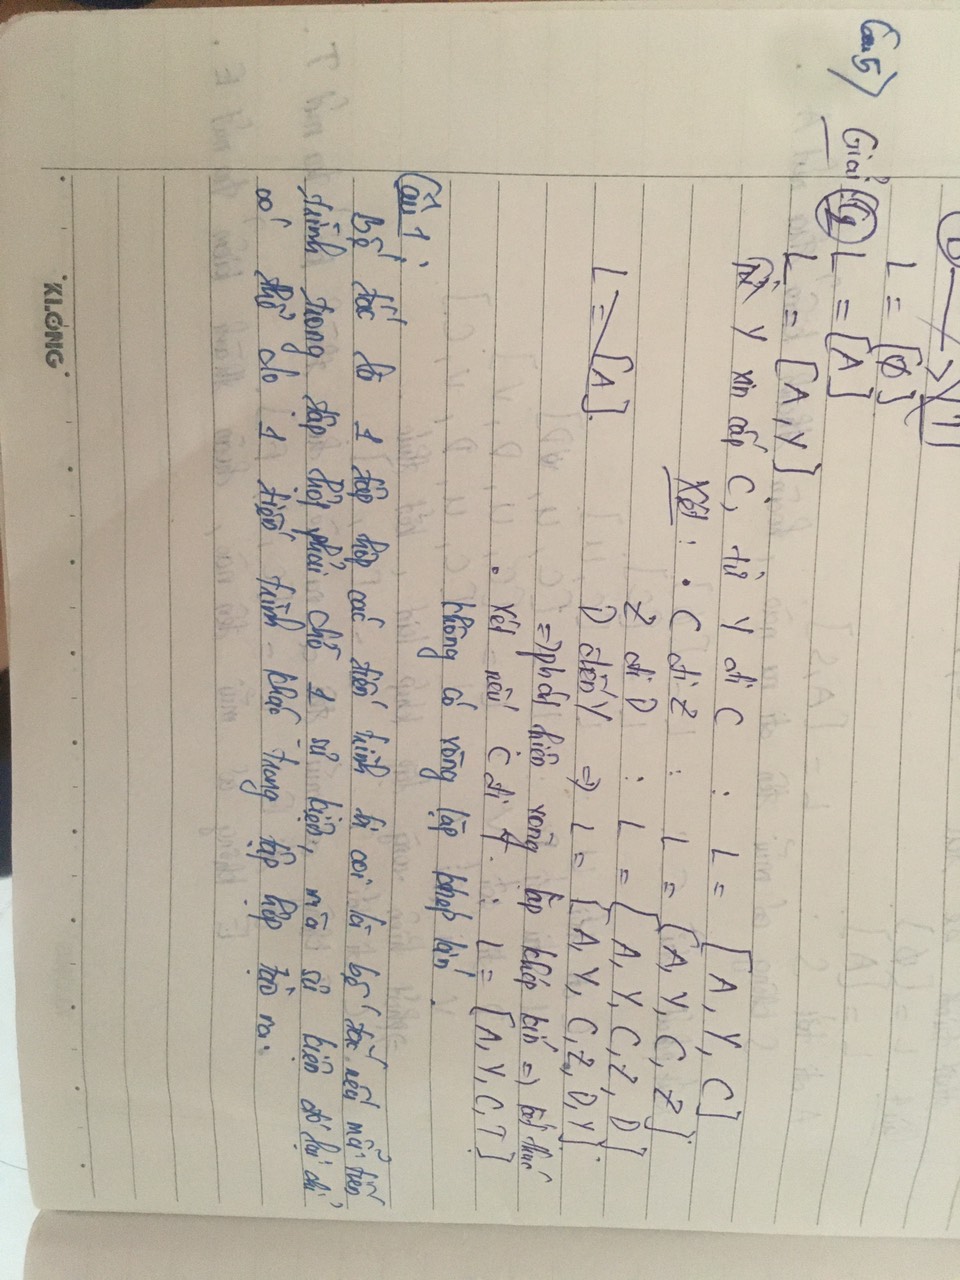 L = [Ø]
Câu 5) Giải: L = [A]
L = [A, Y]
Y xin cấp C, từ Y đi C : L = [A, Y, C]
Xét : • C đi Z : L = [A, Y, C, Z]
Z đi D : L = [A, Y, C, Z, D]
L = [A].
D đến Y => L = [A, Y, C, Z, D, Y]
=> phát hiện vòng lặp khép kín => kết thúc
• Xét nếu C đi T : L = [A, Y, C, T]
không có vòng lặp khép kín.
Câu 1:
Bế tắc là 1 tập hợp các tiến trình bị coi là bế tắc nếu mỗi tiến
trình trong tập hợp phải chờ 1 sự kiện, mà sự kiện đó lại chỉ
có thể do 1 tiến trình khác trong tập hợp tạo ra.
KLONG